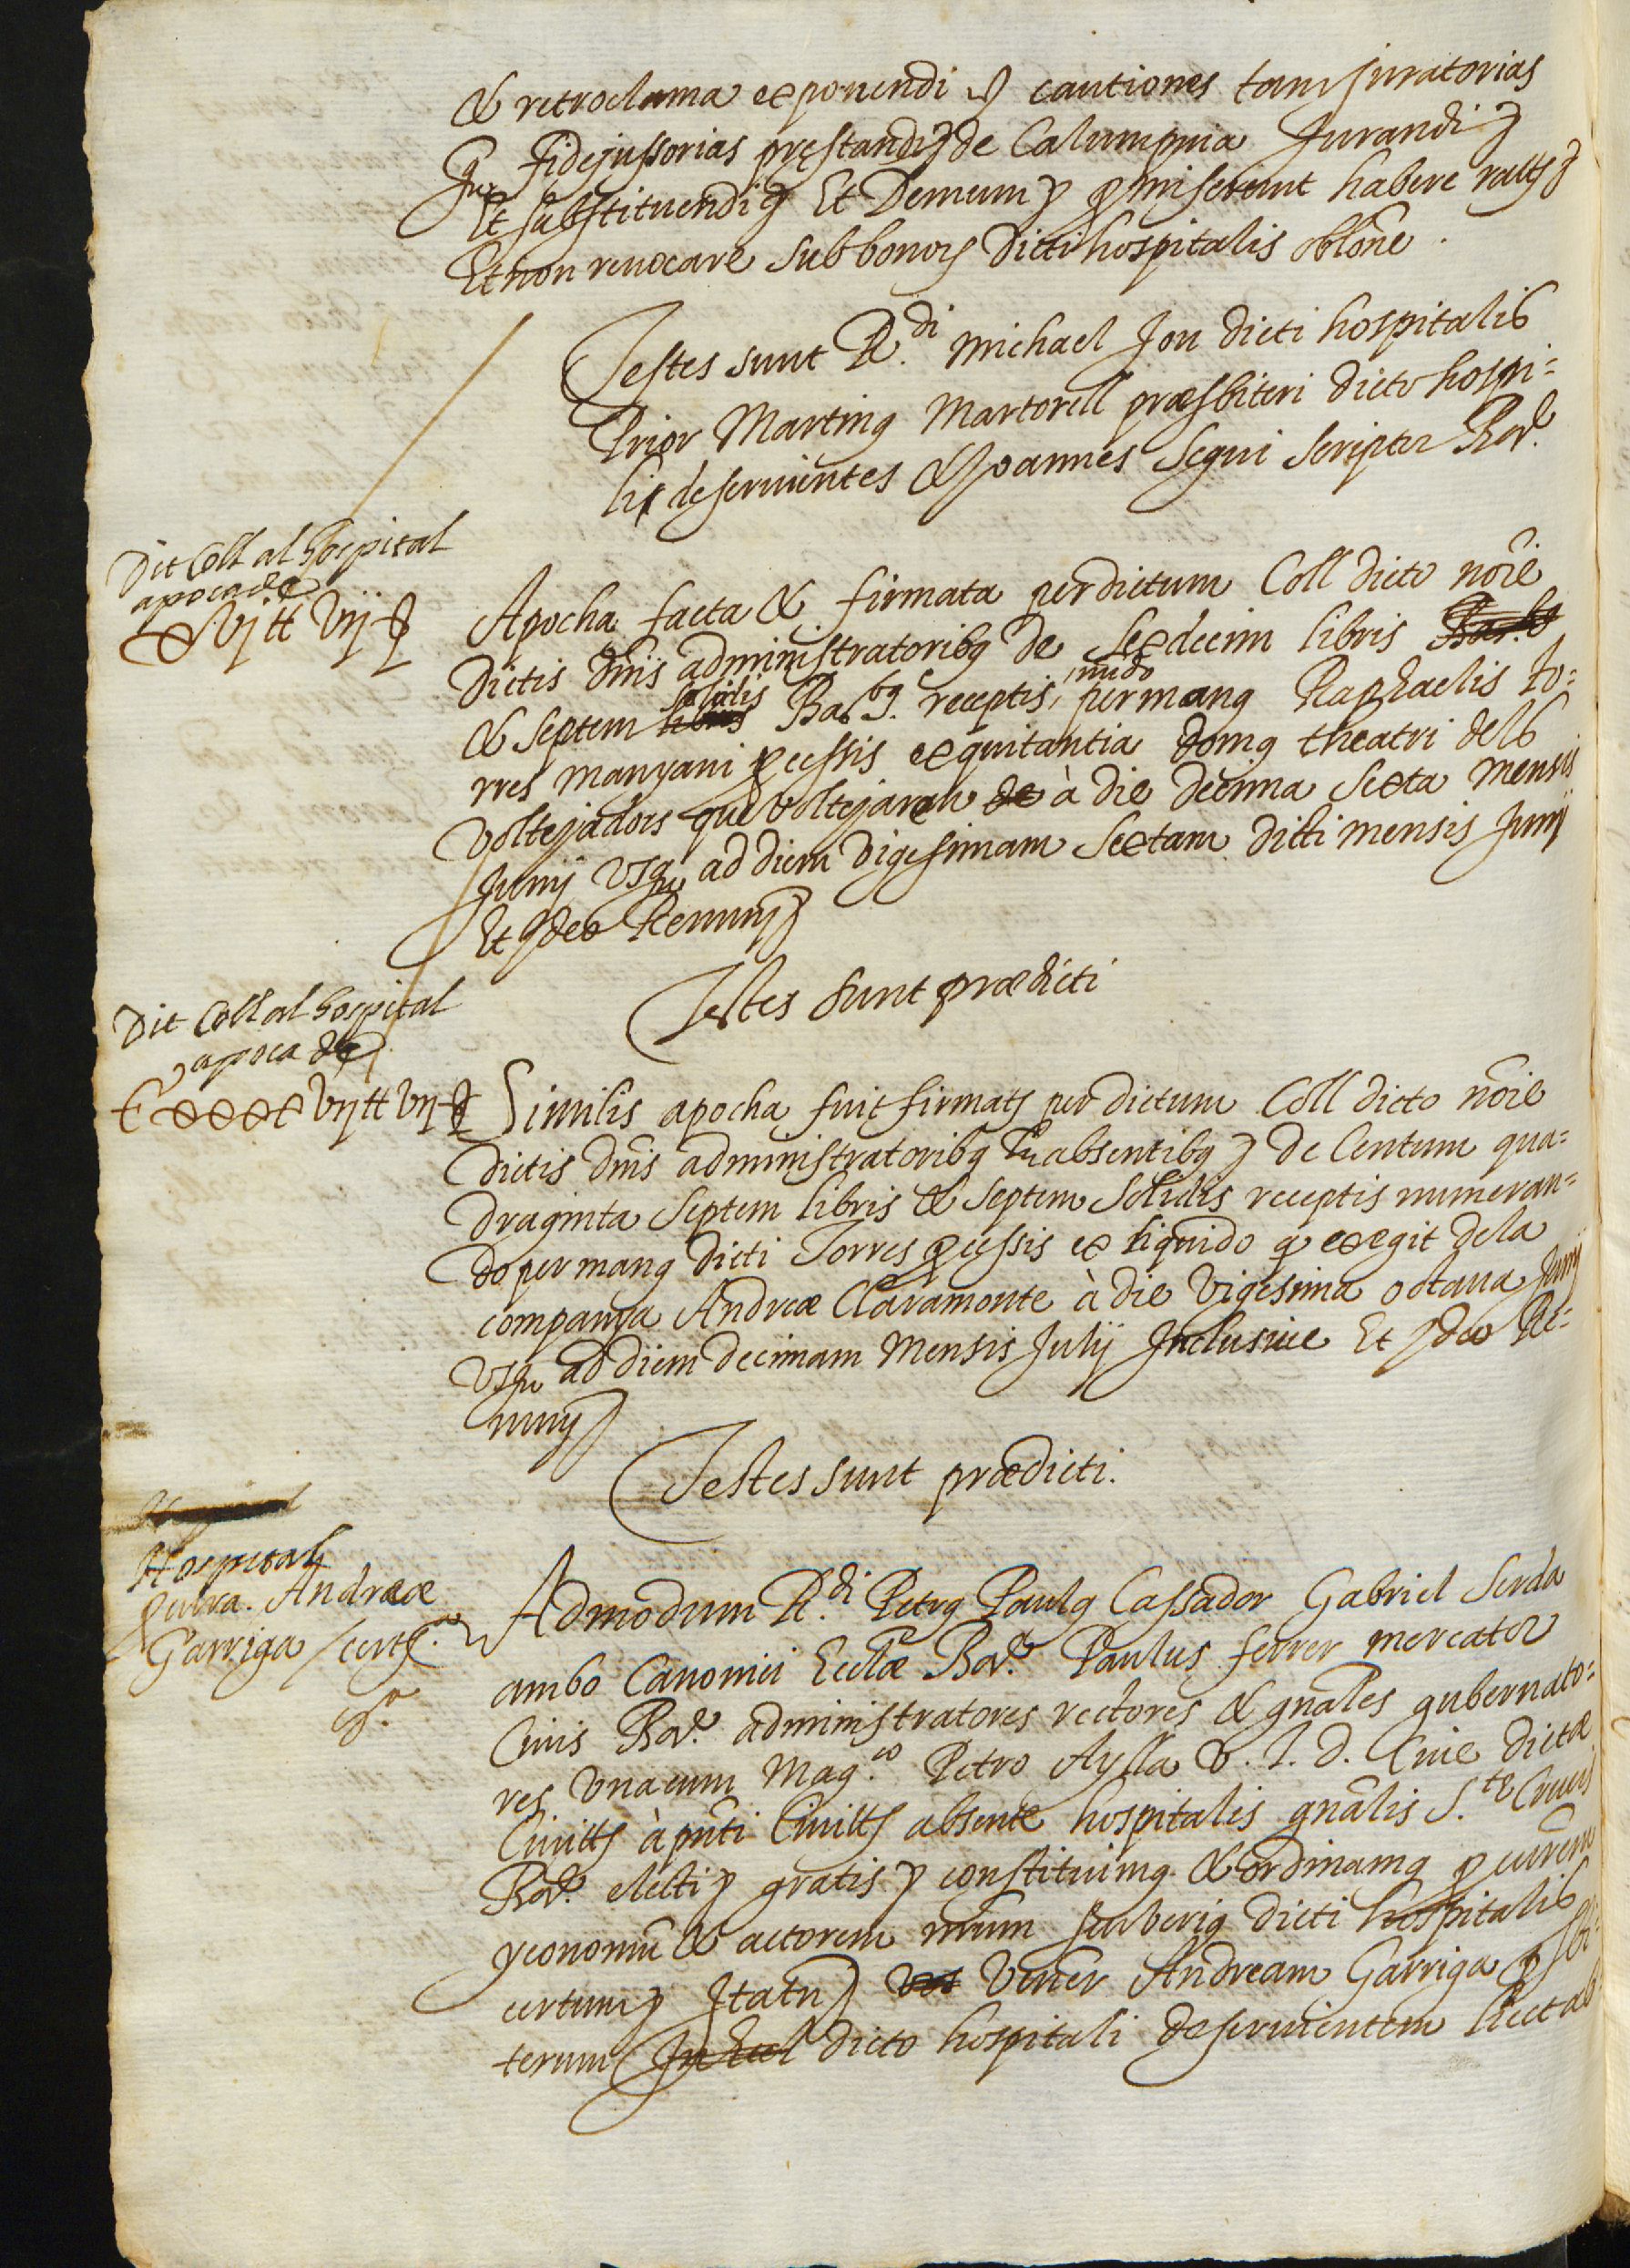 & retroclama exponendi et cautiones tam juratorias
quam fidejussorias pręstandi de Calumpnia Jurandi
Et substituendi Et Demum promiserunt habere ratum
Et non revocare sub bonor dicti hospitalis oblone.
Testes sunt R.di Michael Jou dicti hospitalis
Prior Martinus Martorell præsbiteri dicto hospi=
li deservientes & Joannes Segui scriptor Bar.e
Dit Coll al hospital
apoca de
xvj ₶ vij ß
Apocha facta & firmata per dictum Coll dicto noie
dictis dnis administratoribus de sexdecim libris
& septem solidis Bar.
receptis, mido per manus Raphaelis to=
rres manyani processis ex quitantia domus theatri dels
voltejadors que voltejaren à die decima sexta mensis
Junij usque ad diem vigesimam sextam dicti mensis Junij
Et Ideo Renunt
Testes sunt prædicti
Dit Coll al hospital
apoca de
Cxxxxvij ₶ vij ß
Similis apocha fuit firmata per dictum Coll dicto noie
dictis dnis administratoribus absentibus de Centum qua=
draginta septem libris & septem solidis receptis numeran=
do per manus dicti Torres processis ex liquido quod exegit de la
companya Andreæ Claramonte à die vigesima octava Junij
usque ad diem decimam mensis Julij Inclusive Et Ideo Re=
nunt
Testes sunt prædicti.
Hospitalis
procura. Andreæ
Garriga
Admodum R.di Petrus Paulus Cassador Gabriel Serda
ambo Canonici Eccłæ Bar.e Paulus ferrer mercator
Civis Bar.e administratores rectores & gnales gubernato=
res unacum Mag.co Petro Aylla V. J. D. Cive dictæ
Civitts à pnti Civitts absente hospitalis gnalis S.te Crucis
Bar.e electi gratis constituimus & ordinamus procurem
yconomũ & actorem nrum seu verius dicti hospitalis
certum Itatn vos vener Andream Garriga prsbi=
terum dicto hospitali deservientem licet ab=